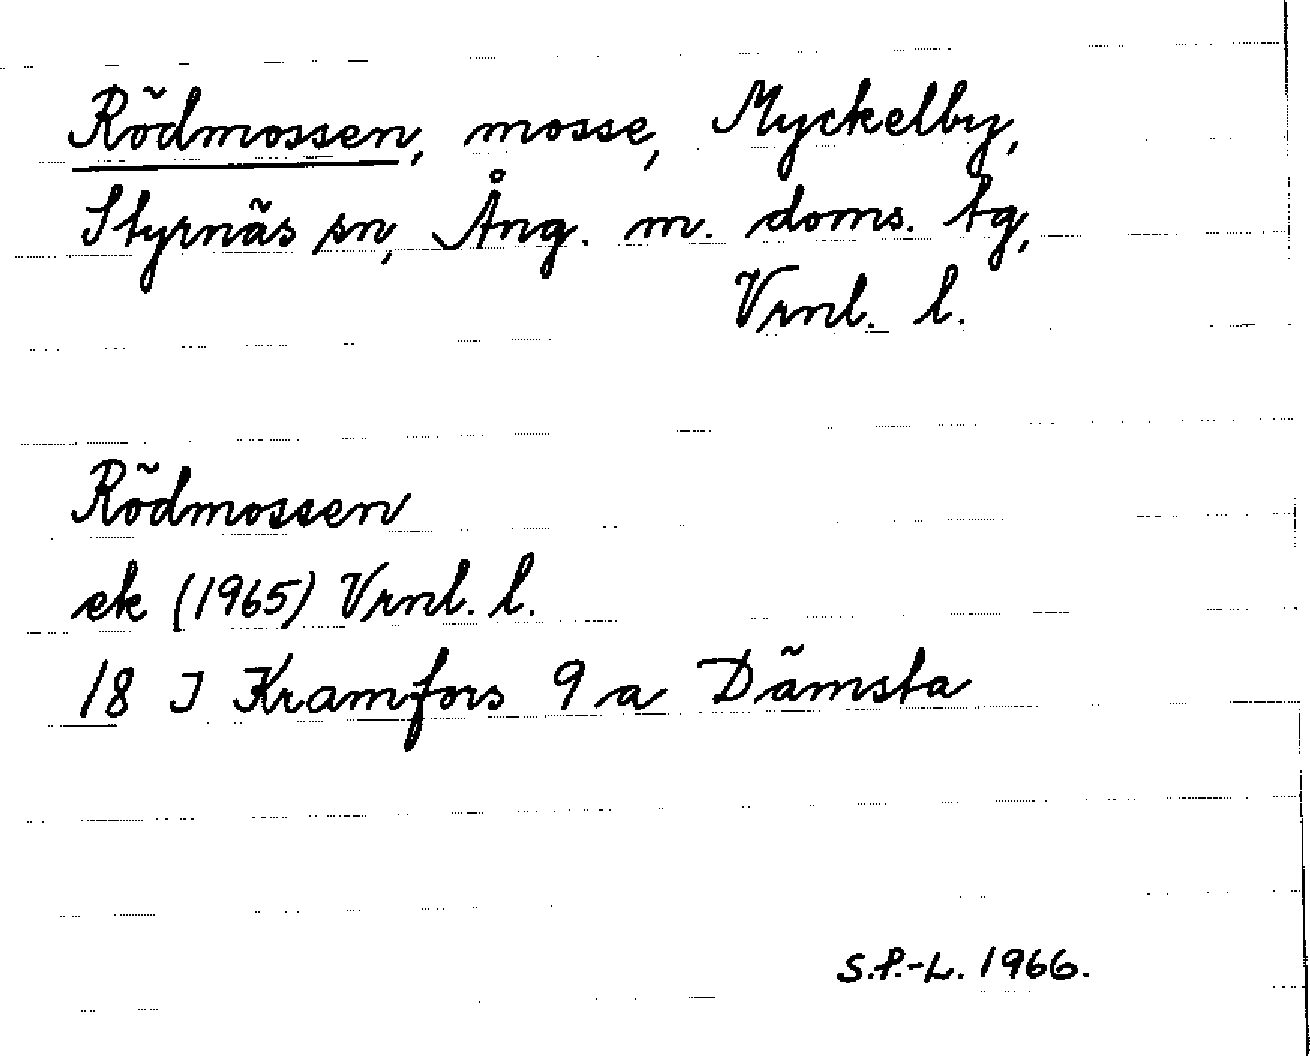 Rödmossen, mosse, Myckelby,
Styrnäs sn, Ång. m. doms. tg,
Vrnl. l.
Rödmossen
ek (1965) Vrnl. l.
18 I Kramfors 9 a Dämsta
S.P.-L. 1966.